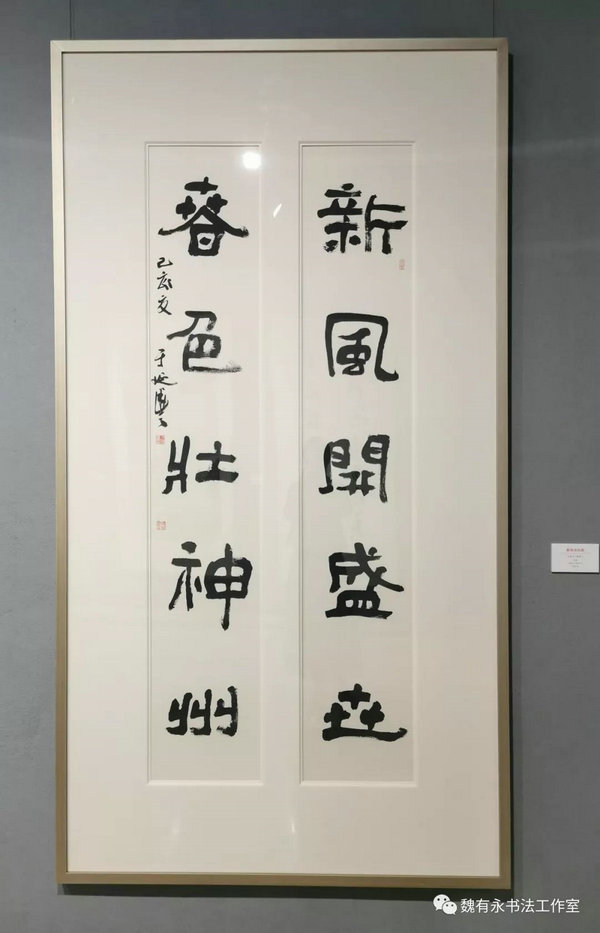 新風開盛世
春色壯神州
己亥夏
魏有永书法工作室